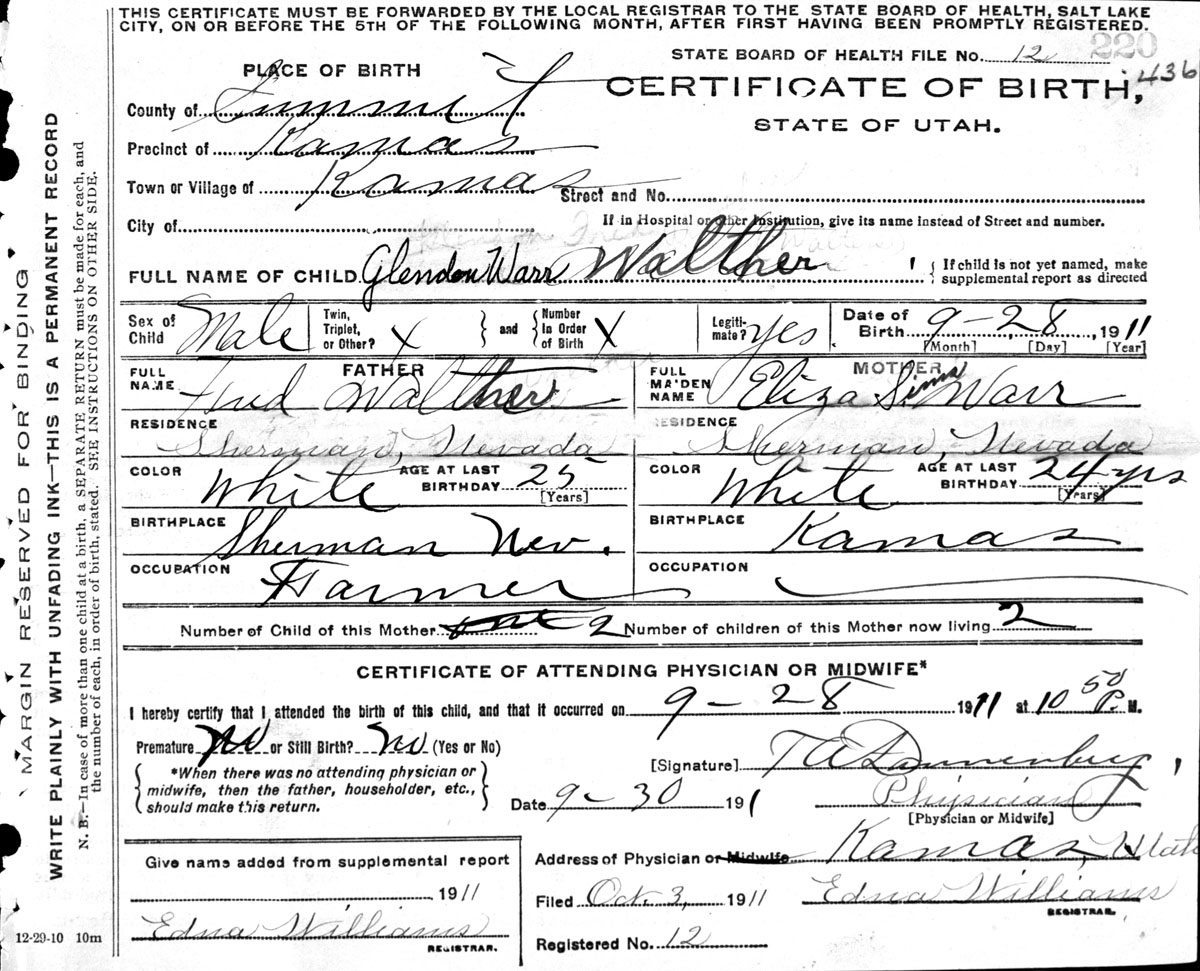 THIS CERTIFICATE MUST BE FORWARDED BY THE LOCAL REGISTRAR TO THE STATE BOARD OF HEALTH, SALT LAKE
CITY, ON OR BEFORE THE 5TH OF THE FOLLOWING MONTH, AFTER FIRST HAVING BEEN PROMPTLY REGISTERED.
220
STATE BOARD OF HEALTH FILE No. 12
436
PLACE OF BIRTH
CERTIFICATE OF BIRTH,
STATE OF UTAH.
County of Summit
Precinct of Kamas
Town or Village of Kamas Street and No.
City of If in Hospital or other Institution, give its name instead of Street and number.
FULL NAME OF CHILD Glendon Warr Walther { If child is not yet named, make supplemental report as directed
Sex of Child Male Twin, Triplet, or Other? X } and { Number In Order of Birth X Legiti-mate? yes Date of Birth 9-28, 1911
[Month] [Day] [Year]
FATHER MOTHER
FULL NAME Fred Walther FULL MAIDEN NAME Eliza Sims Warr
RESIDENCE Sherman, Nevada RESIDENCE Sherman, Nevada
COLOR White AGE AT LAST BIRTHDAY 25 [Years] COLOR White AGE AT LAST BIRTHDAY 24 yrs [Years]
BIRTHPLACE Sherman Nev. BIRTHPLACE Kamas
OCCUPATION Farmer OCCUPATION
Number of Child of this Mother 2 Number of children of this Mother now living 2
CERTIFICATE OF ATTENDING PHYSICIAN OR MIDWIFE*
I hereby certify that I attended the birth of this child, and that it occurred on 9-28 1911 at 10 50 P. M.
Premature No or Still Birth? No (Yes or No)
{ *When there was no attending physician or midwife, then the father, householder, etc., should make this return. }
[Signature] T A Dannenburg,
Date 9-30 1911 Physician
[Physician or Midwife]
Give name added from supplemental report
1911
Edna Williams
REGISTRAR.
Address of Physician or Midwife Kamas, Utah
Filed Oct. 3, 1911 Edna Williams
REGISTRAR.
Registered No. 12
12-29-10 10m
MARGIN RESERVED FOR BINDING
WRITE PLAINLY WITH UNFADING INK—THIS IS A PERMANENT RECORD
N. B.—In case of more than one child at a birth, a SEPARATE RETURN must be made for each, and
the number of each, in order of birth, stated. SEE INSTRUCTIONS ON OTHER SIDE.